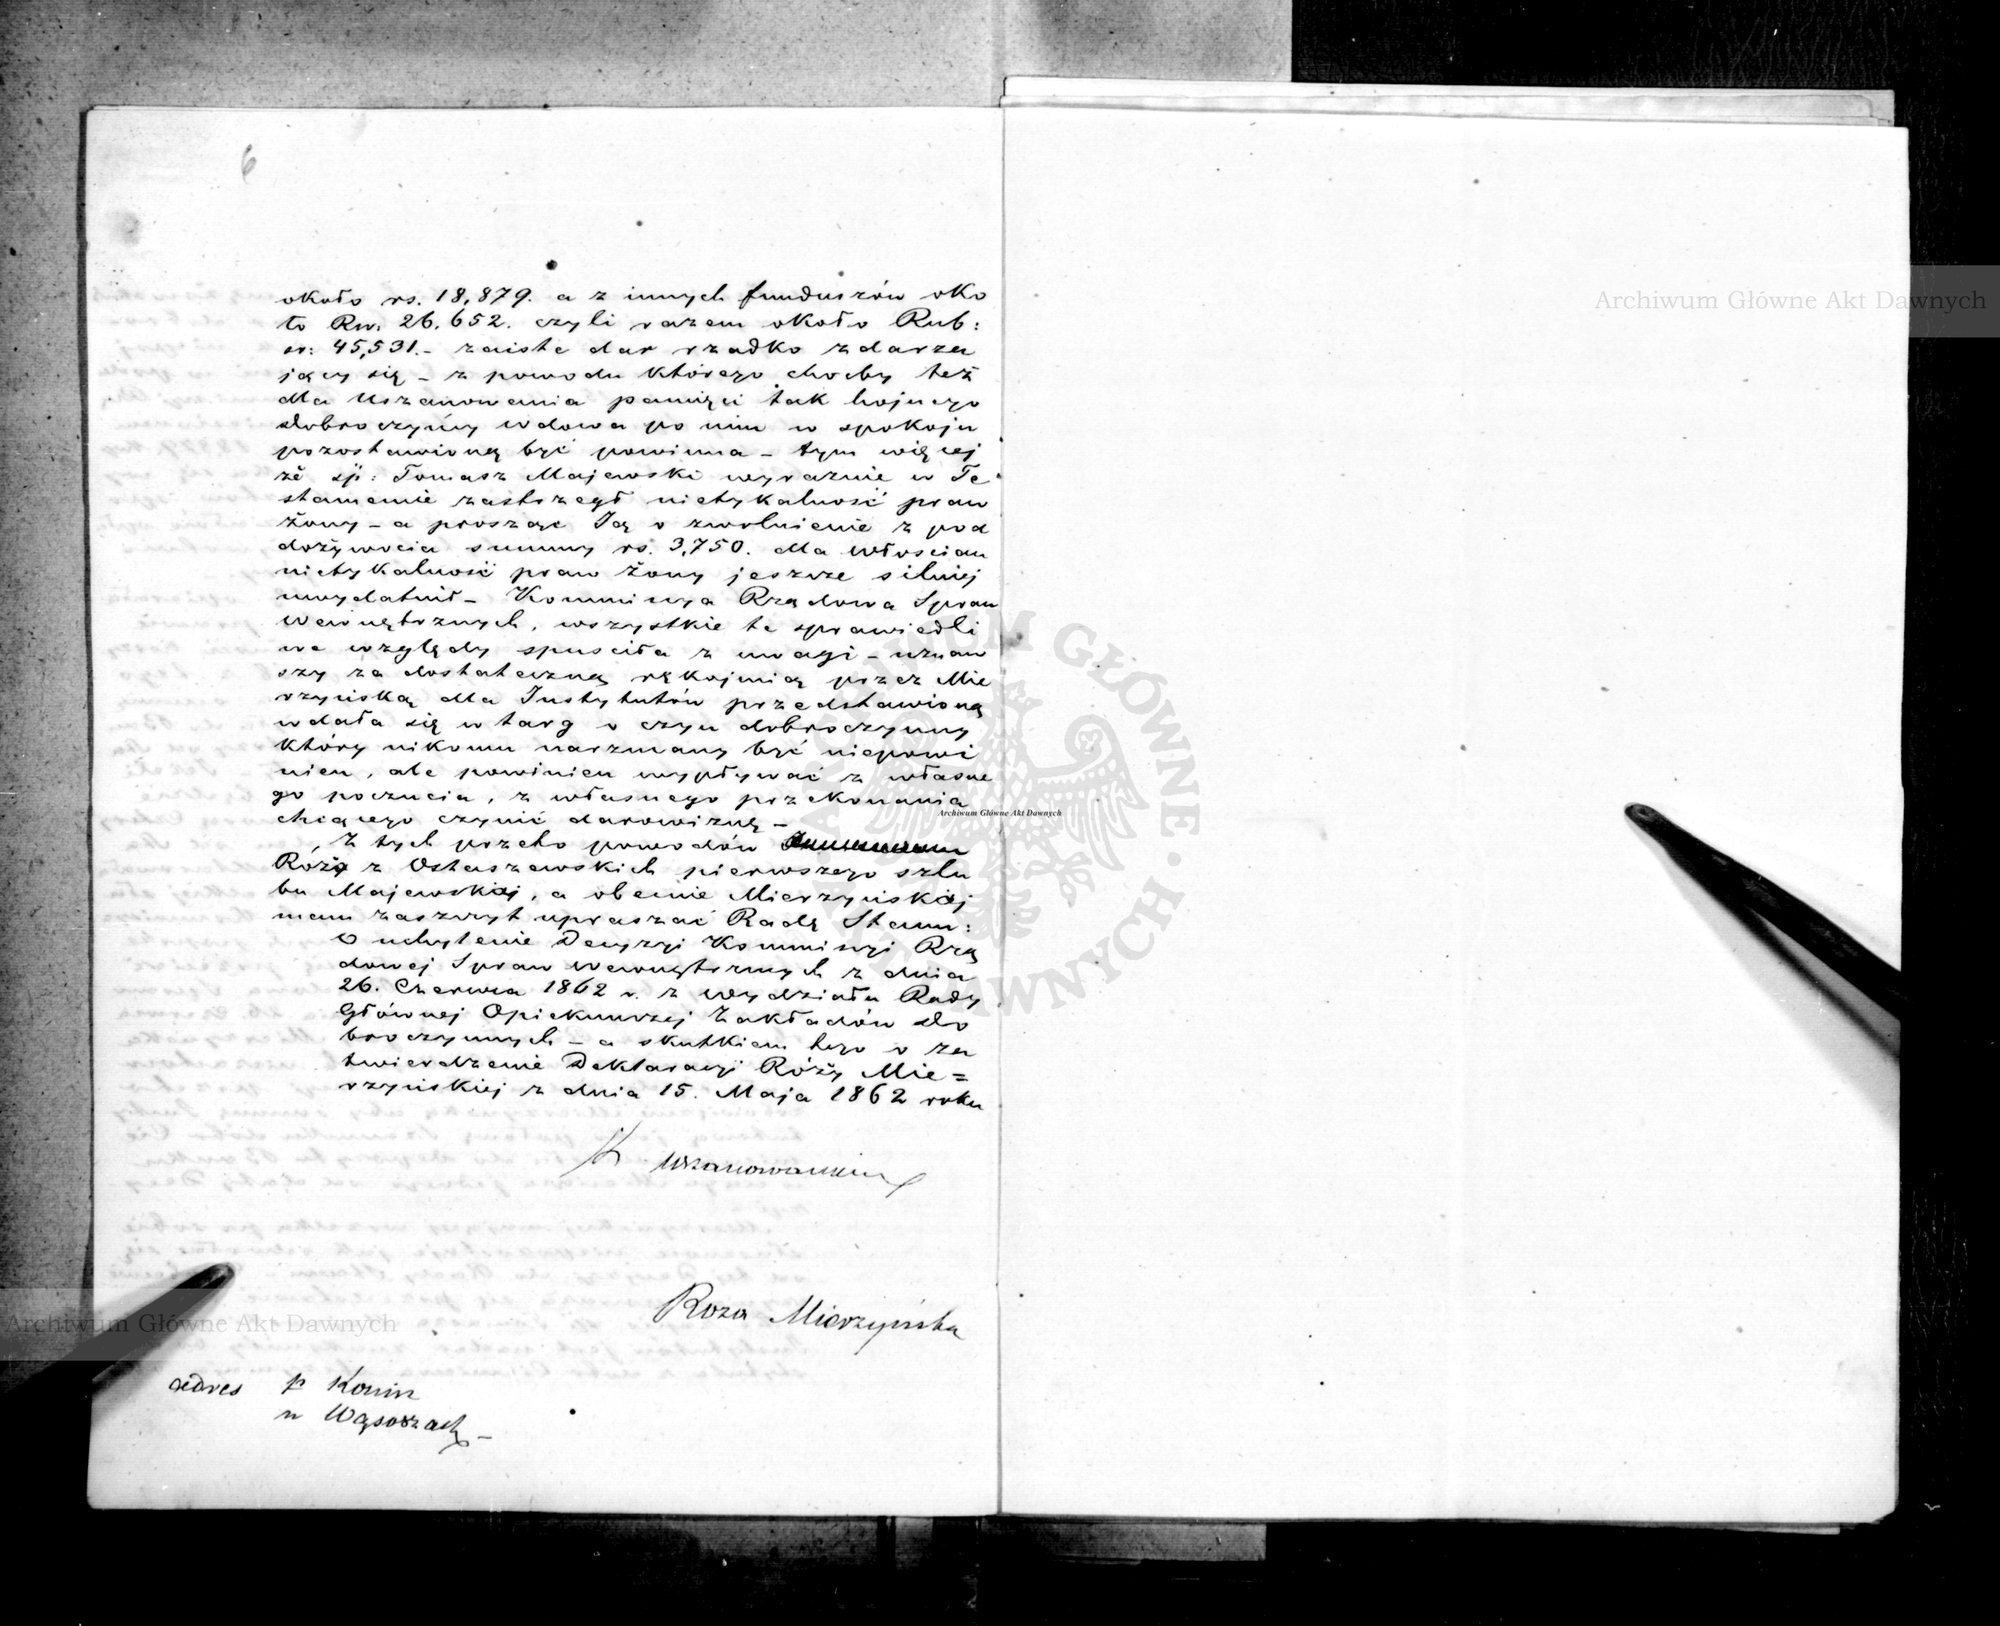 6
około rs. 18,879. a z innych funduszów oko
ło Rs. 26,652. czyli razem około Rub:
sr: 45,531.- zaiste dar rzadko zdarza
jący się - z powodu którego choćby też
dla uszanowania pamięci tak hojnego
dobroczyńcy wdowa po nim w spokoju
pozostawioną być powinna - tym więcej
że śp: Tomasz Majewski wyraźnie w Te
stamencie zastrzegł nietykalność praw
żony - a prosząc Ją o zwolnienie z pod
dożywocia summy rs. 3,750. dla Włoscian
nietykalność praw żony jeszcze silniej
uwydatnił - Kommissya Rządowa Spraw
Wewnętrznych, wszystkie te sprawiedli
we względy spuściła z uwagi - uznaw
szy za dostateczną rękojmią przez Mie
rzyńską dla Instytutów przedstawioną
wdała się w targ o czyn dobroczynny
który nikomu narzucany być niepowi
nien, ale powinien wypływać z własne
go poczucia, z własnego przekonania
chcącego czynić darowiznę -
Z tych przeto powodów
Róży z Ostaszewskich pierwszego szlu
bu Majewskiej, a obecnie Mierzyńskiej
mam zaszczyt upraszać Radę Stanu:
O uchylenie Decyzyi Kommissyi Rzą
dowej Spraw Wewnętrznych z dnia
26. Czerwca 1862 r. z Wydziału Rady
Głównej Opiekunczej Zakładów do
broczynnych - a skutkiem tego o za
twierdzenie Deklaracyi Róży Mie=
rzyńskiej z dnia 15. Maja 1862 roku
Roza Mierzyńska
adres p Konin
w Wąsoszach -
Archiwum Główne Akt Dawnych
Archiwum Główne Akt Dawnych
Archiwum Główne Akt Dawnych
ARCHIWUM GŁÓWNE AKT DAWNYCH